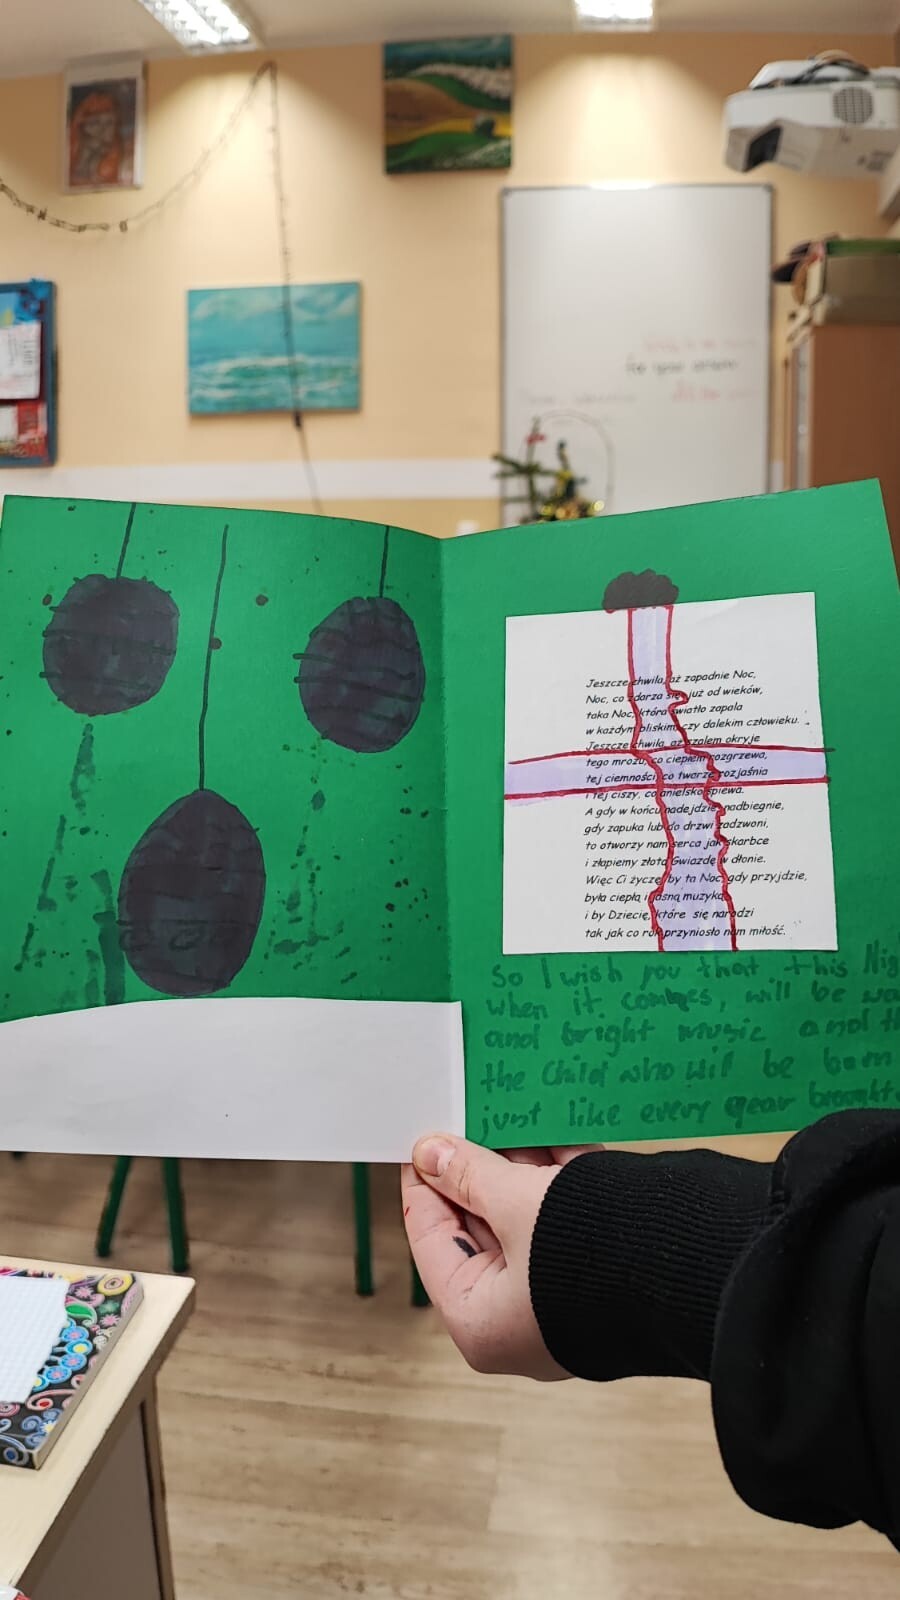 Jeszcze chwila, aż zapadnie Noc,
Noc, co zdarza się już od wieków,
taka Noc, która światło zapala
w każdym bliskim, czy dalekim człowieku.
Jeszcze chwila, aż szalem okryje
tego mrozu, co ciepłem rozgrzewa,
tej ciemności, co twarze rozjaśnia
i tej ciszy, co anielsko śpiewa.
A gdy w końcu nadejdzie, nadbiegnie,
gdy zapuka lub do drzwi zadzwoni,
to otworzy nam serca jak skarbce
i złapiemy złotą Gwiazdę w dłonie.
Więc Ci życzę, by ta Noc, gdy przyjdzie,
była ciepłą i jasną muzyką
i by Dziecię, które się narodzi
tak jak co rok przyniosło nam miłość.
So I wish you that this
when it comes, will be
and bright music and
the Child who will be born
just like every year